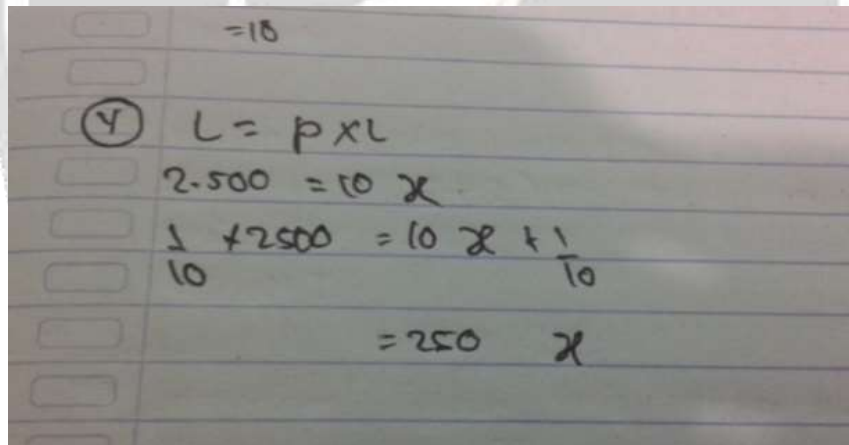 =18
④ L = p x L
2.500 = 10 x
1/10 x 2500 = 10 x x 1/10
= 250 x